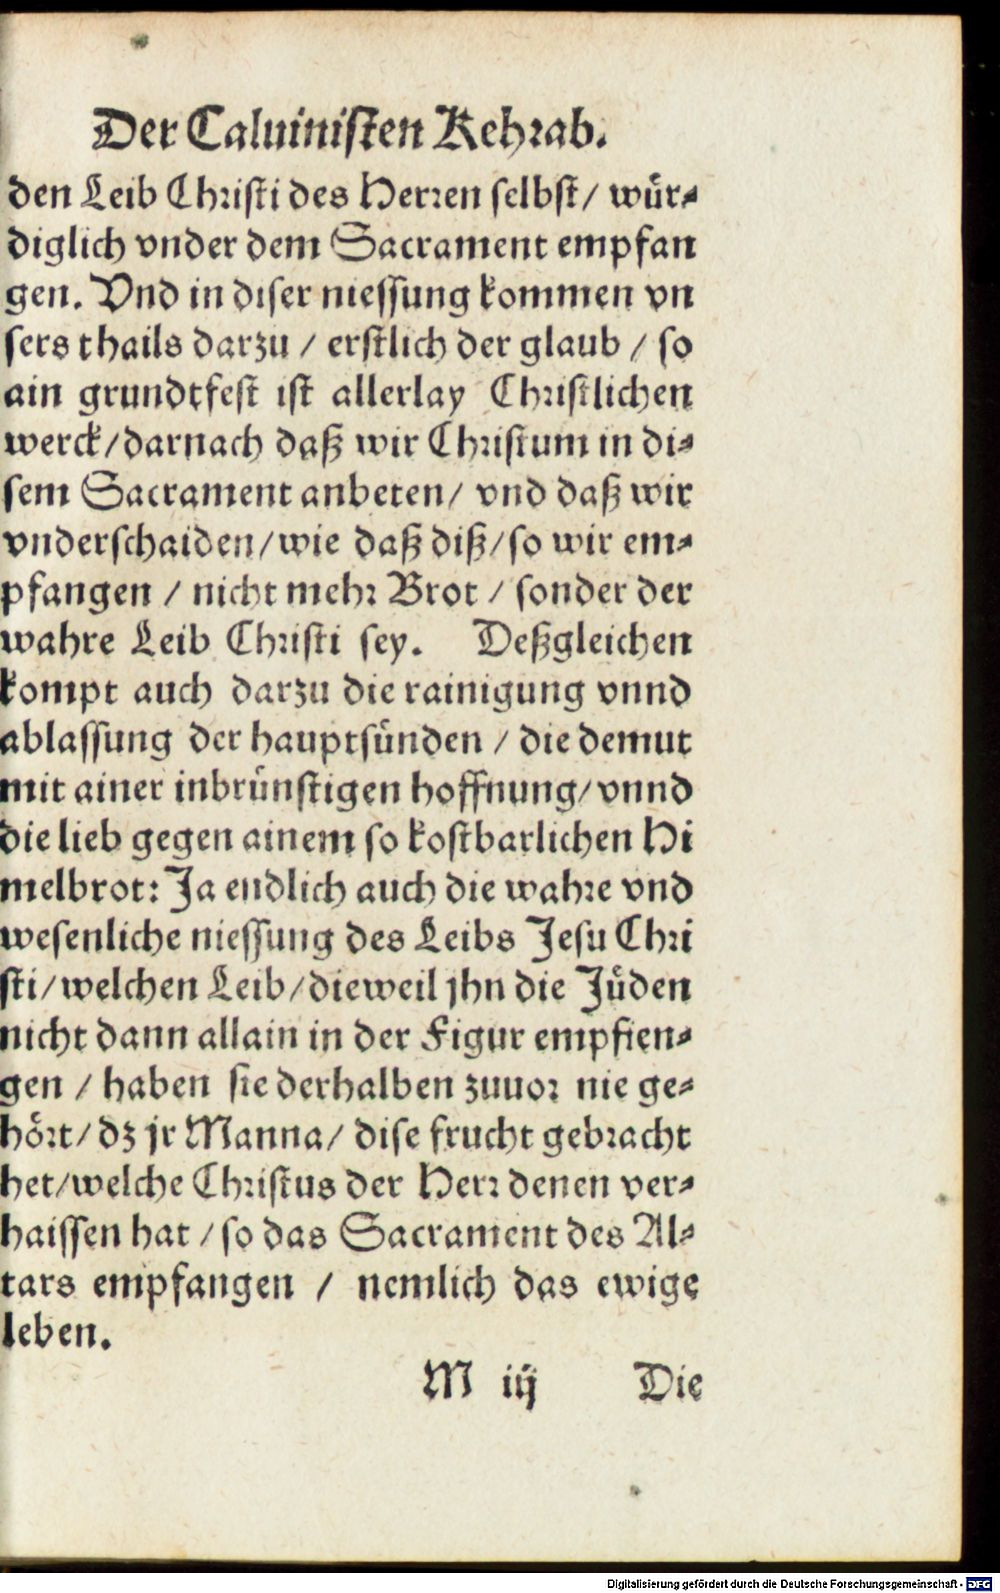 Der Caluinisten Kehrab.
den Leib Christi des Herren selbst/ wür⸗
diglich vnder dem Sacrament empfan
gen. Vnd in diser niessung kommen vn
sers thails darzu / erstlich der glaub / so
ain grundtfest ist allerlay Christlichen
werck/darnach daß wir Christum in di⸗
sem Sacrament anbeten/ vnd daß wir
vnderschaiden/wie daß diß/so wir em⸗
pfangen / nicht mehr Brot / sonder der
wahre Leib Christi sey. Deßgleichen
kompt auch darzu die rainigung vnnd
ablassung der hauptsünden / die demut
mit ainer inbrünstigen hoffnung/vnnd
die lieb gegen ainem so kostbarlichen Hi
melbrot: Ja endlich auch die wahre vnd
wesenliche niessung des Leibs Jesu Chri
sti/welchen Leib/dieweil jhn die Jüden
nicht dann allain in der Figur empfien⸗
gen / haben sie derhalben zuuor nie ge⸗
hört/ dz jr Manna/ dise frucht gebracht
het/welche Christus der Herr denen ver⸗
haissen hat /so das Sacrament des Al⸗
tars empfangen / nemlich das ewige
leben.
M iij Die
Digitalisierung gefördert durch die Deutsche Forschungsgemeinschaft - DFG